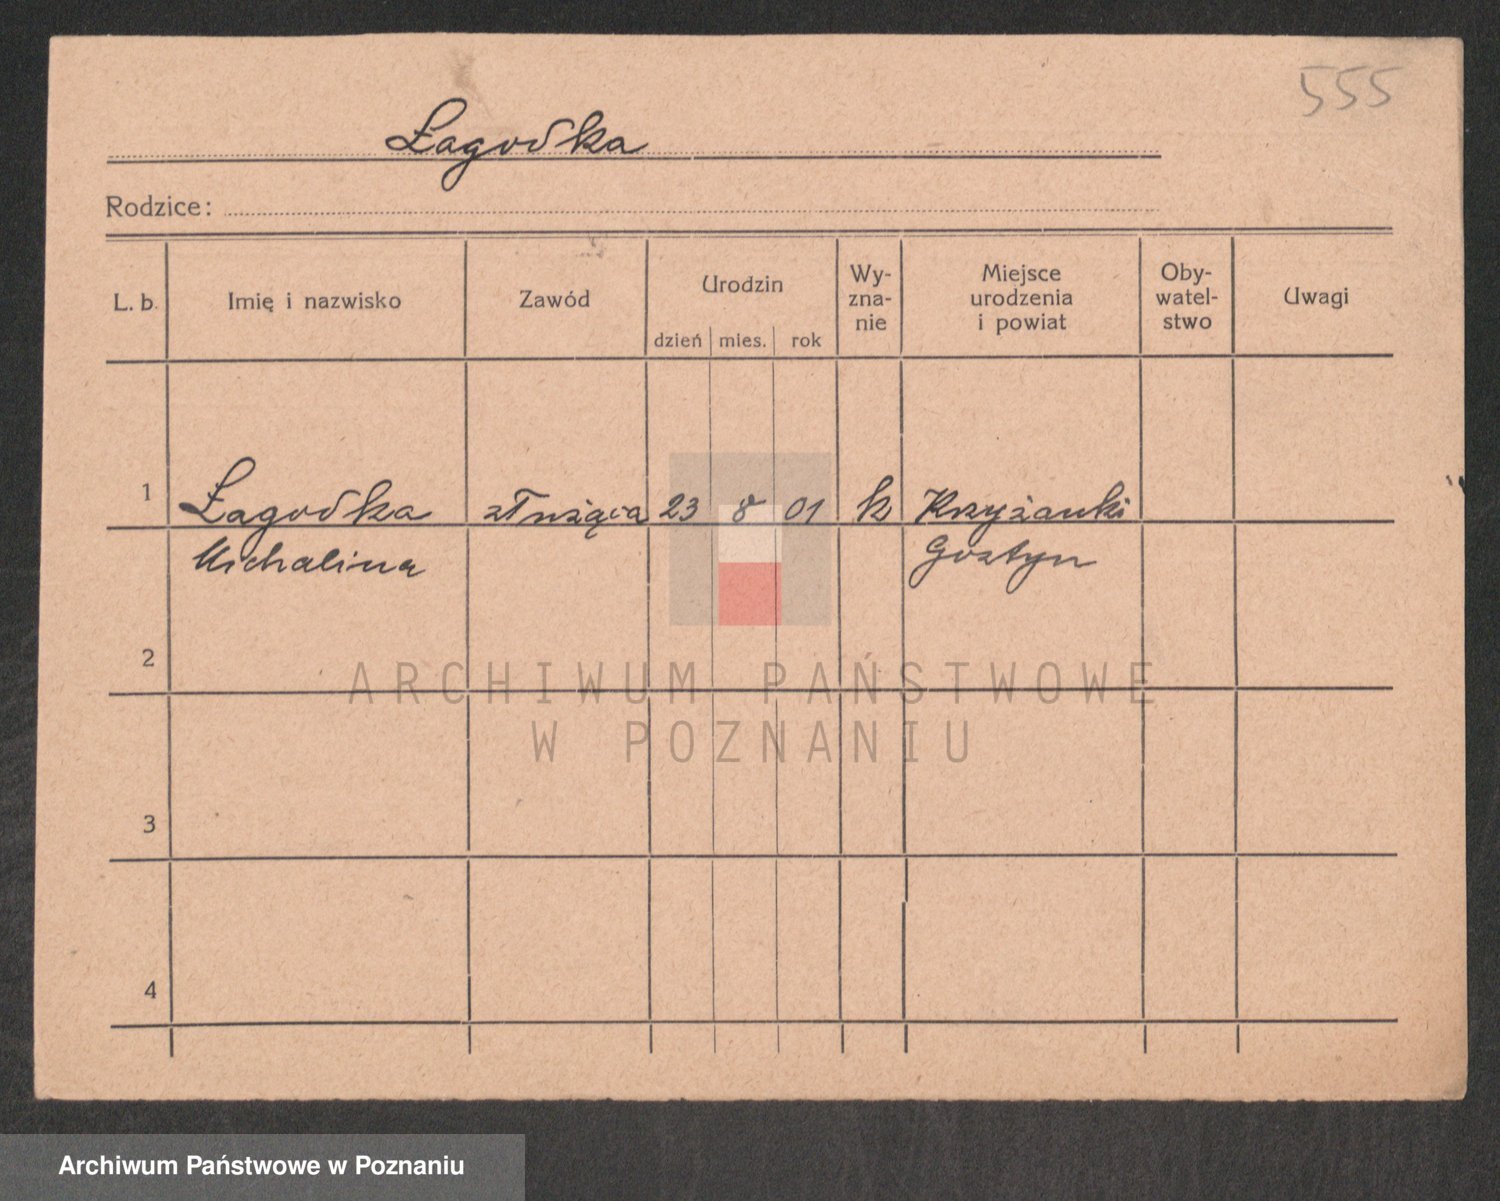 555
Łagodka
Rodzice:
L. b. Imię i nazwisko Zawód Urodzin dzień mies. rok Wy-zna-nie Miejsce urodzenia i powiat Oby-watel-stwo Uwagi
1 Łagodka służąca 23 8 01 k Krzyżanki
Michalina Gostyn
2
ARCHIWUM PAŃSTWOWE
W POZNANIU
3
4
Archiwum Państwowe w Poznaniu